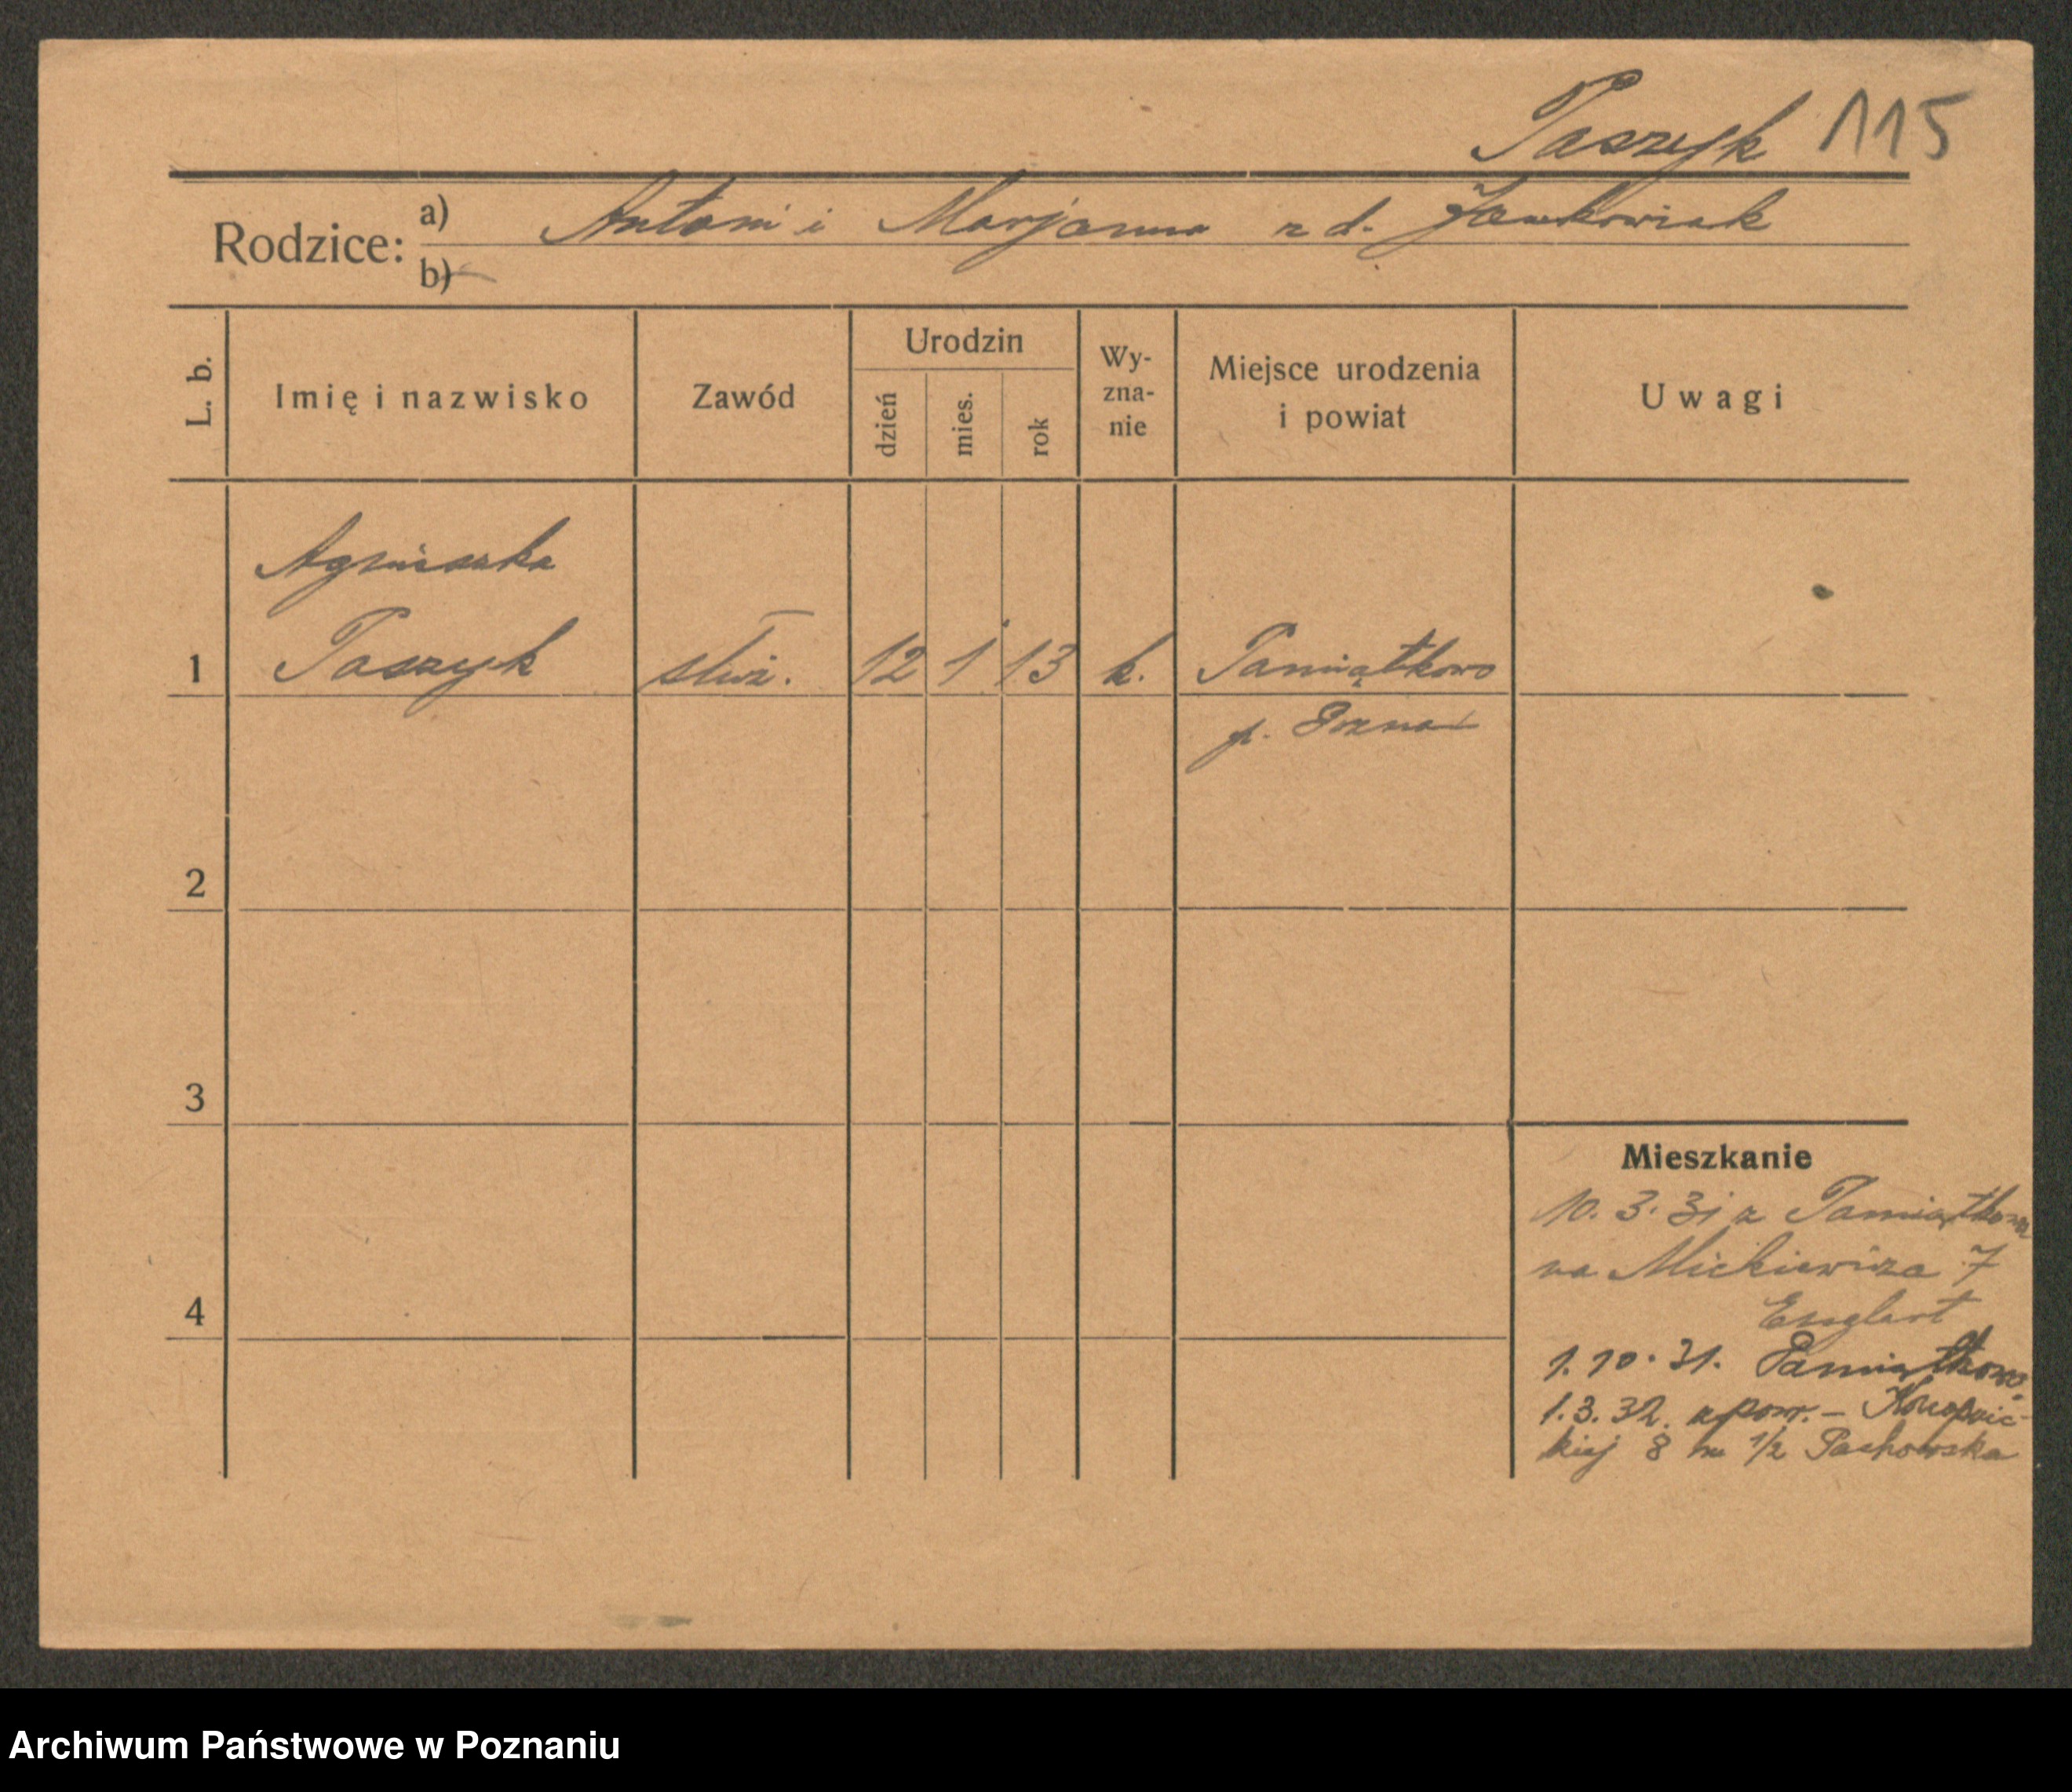 Paszyk 115
Rodzice: a) Antoni i Marjanna z d. Jankowiak
b)
L. b. Imię i nazwisko Zawód Urodzin dzień mies. rok Wy-zna-nie Miejsce urodzenia i powiat Uwagi
Agnieszka
1 Paszyk służ. 12 1 13 k. Pamiątkowo
p. Poznań
2
3
Mieszkanie
10. 3. 31 z Pamiątkowa
na Mickiewicza 7
4
Englert
1. 10. 31. Pamiątkowo
1. 3. 32. z pow. – Konopnic-
kiej 8 m 1/2
Archiwum Państwowe w Poznaniu